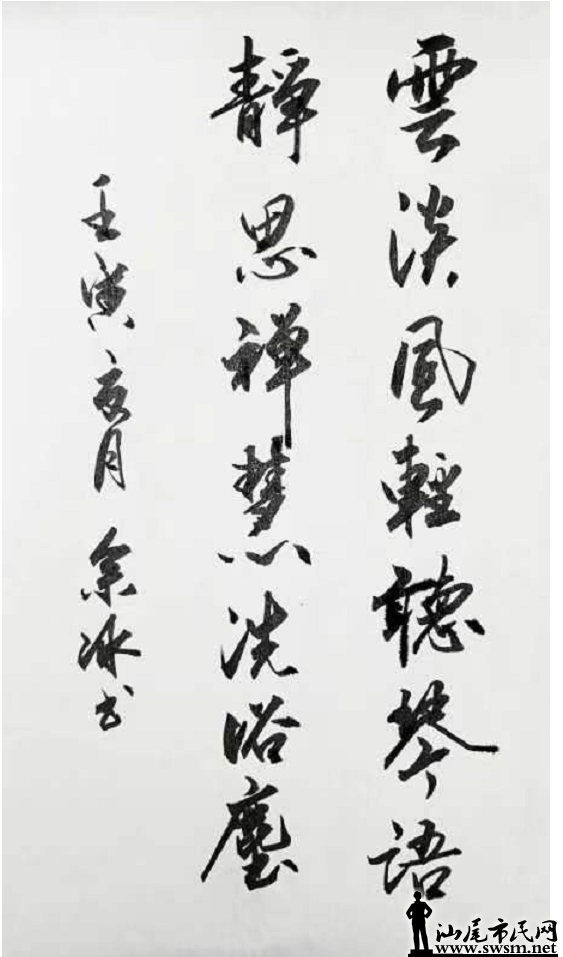 雲淡風輕聽琴語
靜思禪慧洗俗塵
壬寅亥月 余冰书
汕尾市民网
www.swsm.net